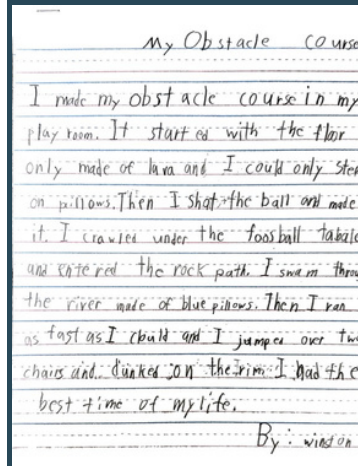 My Obstacle course
I made my obstacle course in my
play room. It started with the floor
only made of lava and I could only step
on pillows. Then I shot the ball and made
it. I crawled under the foosball tabale
and entered the rock path. I swam throu
the river made of blue pillows. Then I ran
as fast as I cbuld and I jumped over two
chairs and dunked on the rim. I had the
best time of my life.
By: winston